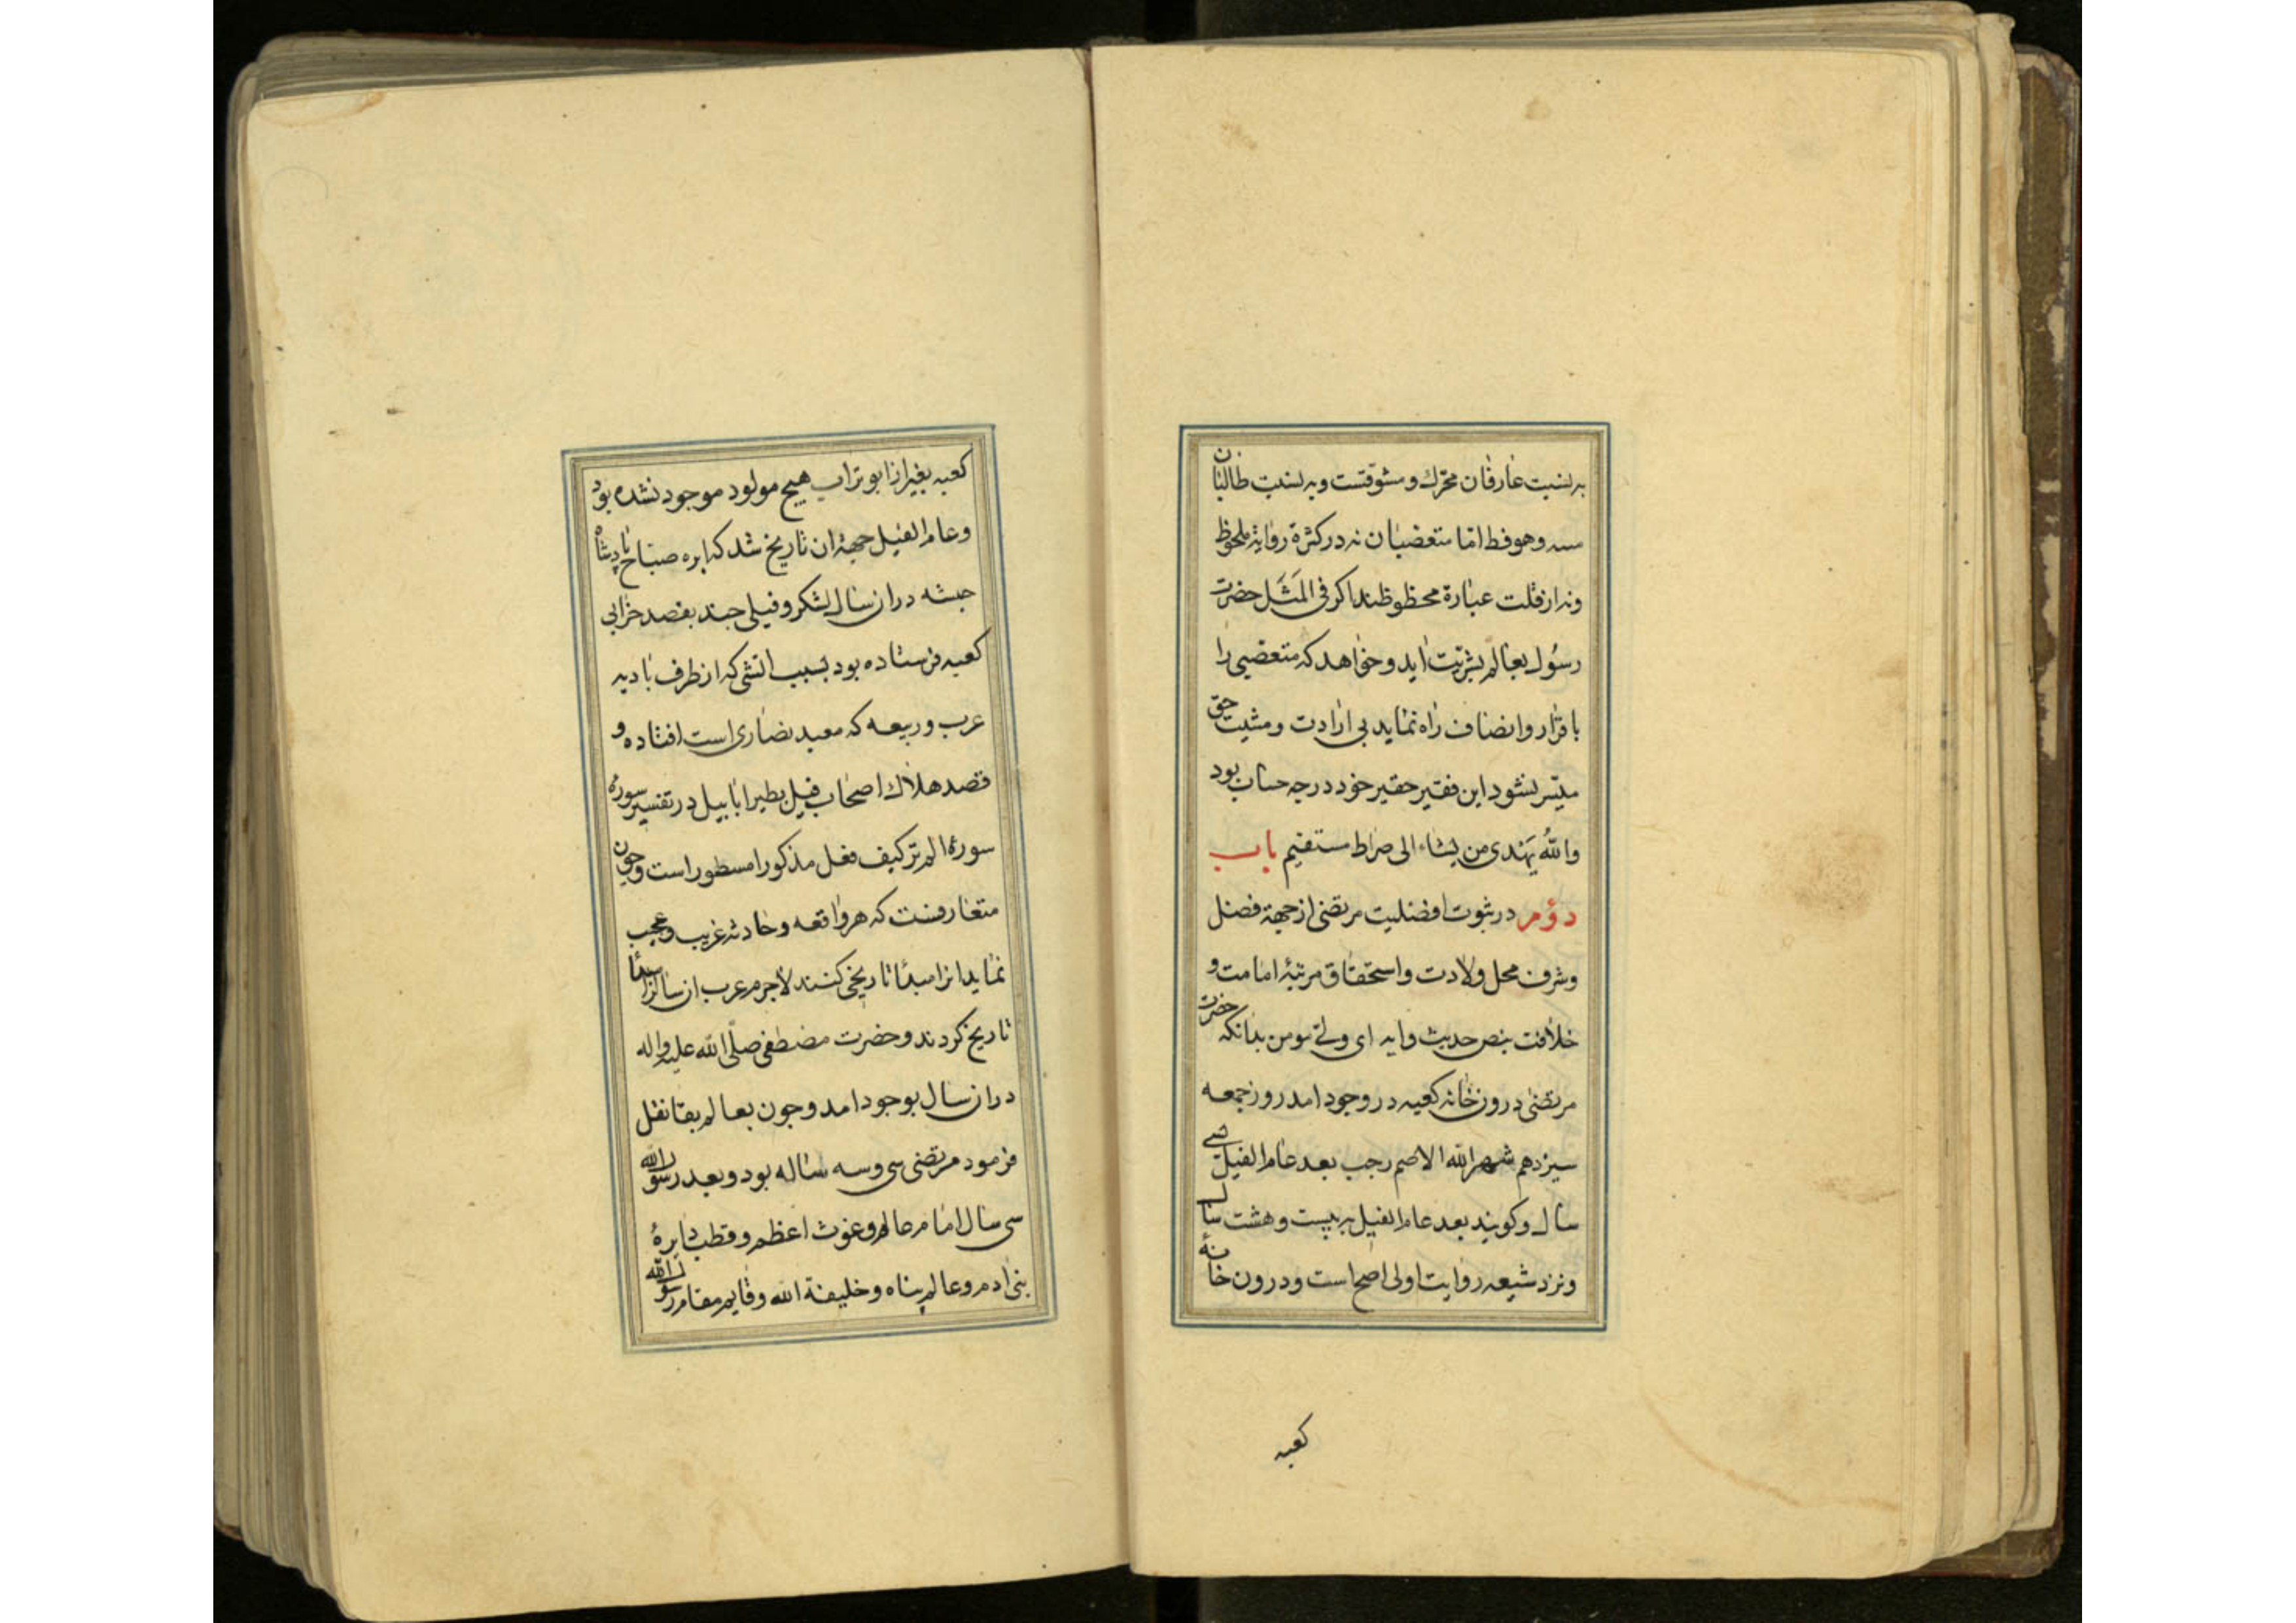 به نسبت عارفان محرك و مشوقتست و به نسبت طالبان
سه وهو فط اما متعصبان نه در كثرة روایة ملحوظ
ونه از قلت عبارة محظوظند اكر فی المَثَل حضرت
رسُول بعالم بشریت اید و خواهد كه متعصبی را
باقرار وانصاف راه نماید بی ارادت ومشیت حق
میسّر نشود این فقیر حقیر خود در چه حساب بود
واللّهُ یَهْدی من یشاء الی صراط مستقیم باب
دؤم در ثبوت افضلیت مرتضی از جهة فضل
وشرف محل ولادت واستحقاق مرتبۀ امامت و
خلافت بنص حدیث وایه ای ولی مومن بدانكه حضرت
مرتضی درون خانه كعبه در وجود امد روز جمعه
سیزدهم شهر اللّه الاصم رجب بعد عام الفیل سی
سال و كویند بعد عام الفیل به بیست وهشت سال
ونزد شیعه روایت اولی اصح است ودرون خانۀ
كعبه
كعبه بغیر از ابو تراب هیچ مولود موجود نشده بود
وعام الفیل جهة ان تاریخ شد كه ابره صباح پادشاه
حبشه دران سال لشكر و فیلی چند بقصد خرابی
كعبه فرستاده بود بسبب اتشی كه از طرف بادیه
عرب و ربیعه كه معبد نصاری است افتاده و
قصد هلاك اصحاب فیل بطیر ابابیل در تفسیر سورۀ
سورۀ الم تر كیف فعل مذكور امسطور است وچون
متعارفست كه هر واقعه وحادثه غریب وعجیب
نماید انرا مبدأ تاریخی كنند لاجرم عرب ان سال را مبدأ
تاریخ كردند و حضرت مصطفی صلّی اللّه علیه واله
دران سال بوجود امد وچون بعالم بقا نقل
فرمود مرتضی سی وسه ساله بود وبعد رسول اللّه
سی سال امام عالم وغوث اعظم وقطب دایرۀ
بنی ادم وعالم پناه وخلیفة اللّه وقایم مقام رسول اللّه